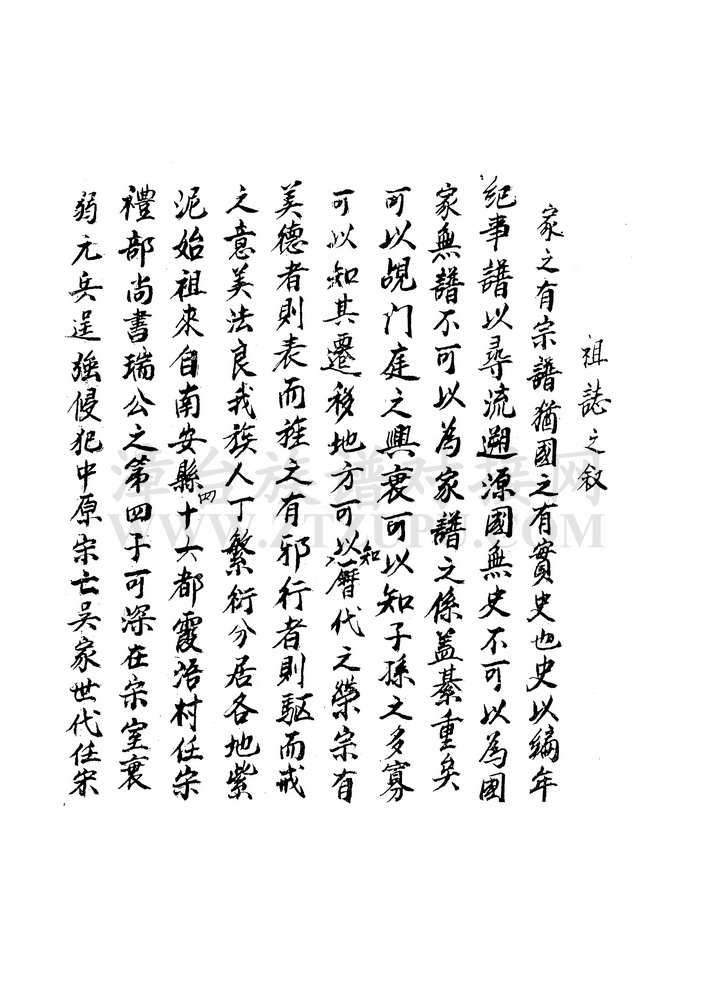 祖誌之叙
家之有宗譜猶國之有實史也史以編年
紀事譜以尋流遡源國無史不可以為國
家無譜不可以為家譜之係盖綦重矣
可以覘门庭之興衰可以知子孫之多寡
可以知其遷移地方可以知曆代之榮宗有
美德者則表而旌之有邪行者則駆而戒
之意美法良我族人丁繁衍分居各地紫
泥始祖來自南安縣四十六都霞浯村任宗
禮部尚書瑞公之第四子可深在宗室衰
弱元兵逞強侵犯中原宋亡吴家世代任宋
漳台族谱对接网
WWW.ZTZUPU.COM